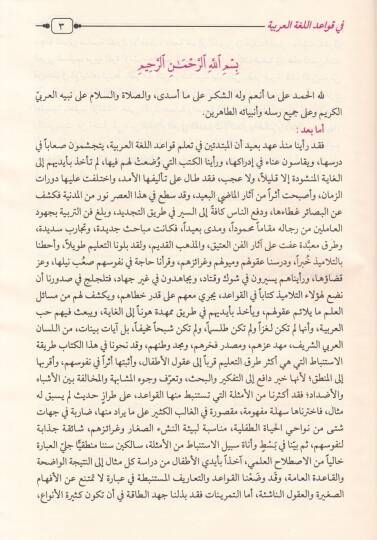 في قواعد اللغة العربية
٣
بِسْمِ ٱللَّهِ ٱلرَّحْمَـٰنِ ٱلرَّحِيمِ
لله الحمد على ما أنعم وله الشكر على ما أسدى، والصلاة والسلام على نبيه العربيّ
الكريم وعلى جميع رسله وأنبيائه الطاهرين.
أما بعد:
فقد رأينا منذ عهد بعيد أن المبتدئين في تعلم قواعد اللغة العربية، يتجشمون صعاباً في
درسها، ويقاسون عناء في إدراكها، ورأينا الكتب التي وُضعتْ لهم فيها، لم تأخذ بأيديهم إلى
الغاية المنشودة إلا قليلاً، ولا عجب، فقد طال على تأليفها الأمد، واختلفت عليها دورات
الزمان، وأصبحت أثراً من آثار الماضي البعيد، وقد سطع في هذا العصر نور من المدنية فكشف
عن البصائر غطاءها، ودفع الناس كافة إلى السير في طريق التجديد، وبلغ فن التربية بجهود
العاملين من رجاله مقاماً محموداً، ومدى بعيداً، فكانت مباحث جديدة، وتجارب سديدة،
وطرق معبَّدة عفت على آثار الفن العتيق، والمذهب القديم، ولقد بلونا التعليم طويلاً، وأحطنا
بالتلاميذ خُبراً، ودرسنا عقولهم وميولهم وغرائزهم، وقرأنا حاجة في نفوسهم صعُب نيلها، وعز
قضاؤها، ورأيناهم يسيرون في شوك وقتاد، ويجاهدون في غير جهاد، فتلجلج في صدورنا أن
نضع لهؤلاء التلاميذ كتاباً في القواعد، يجري معهم على قدر خطاهم، ويكشف لهم من مسائل
العلم ما يلائم عقولهم، ويأخذ بأيديهم في طريق ممهدة هوناً إلى الغاية، ويبعث فيهم حب
العربية، وأنها لم تكن لغزاً ولم تكن طلسماً، ولم تكن شبحاً مخيفاً، بل آيات بينات، من اللسان
العربي الشريف، مهد عزهم، ومصدر فخرهم، ومجد وطنهم، وقد نحونا في هذا الكتاب طريقة
الاستنباط التي هي أكثر طرق التعليم قرباً إلى عقول الأطفال، وأثبتها أثراً في نفوسهم، وأقربها
إلى المنطق؛ لأنها خير دافع إلى التفكير والبحث، وتعرّف وجوه المشابهة والمخالفة بين الأشباه
والأضداد؛ فقد أكثرنا من الأمثلة التي تستنبط منها القواعد، على طراز حديث لم يسبق له
مثال، فاخترناها سهلة مفهومة، مقصورة في الغالب الكثير على ما يراد منها، ضاربة في جهات
شتى من نواحي الحياة الطفلية، مناسبة لبيئة النشء الصغار وغرائزهم، شائقة جذابة
لنفوسهم، ثم بيّنا في بَسْطٍ وأناة سبيل الاستنباط من الأمثلة، سالكين سنناً منطقيًّا جليّ العبارة
خالياً من الاصطلاح العلمي، آخذاً بأيدي الأطفال من دراسة كل مثال إلى النتيجة الواضحة
والقاعدة العامة، وقد وضَعْنا القواعد والتعاريف المستنبطة في عبارة لا تمتنع عن الأفهام
الصغيرة والعقول الناشئة، أما التمرينات فقد بذلنا جهد الطاقة في أن تكون كثيرة الأنواع،